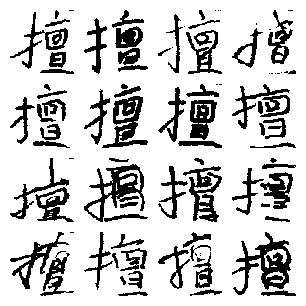 擅擅擅擅
擅擅擅擅
擅擅擅擅
擅擅擅擅